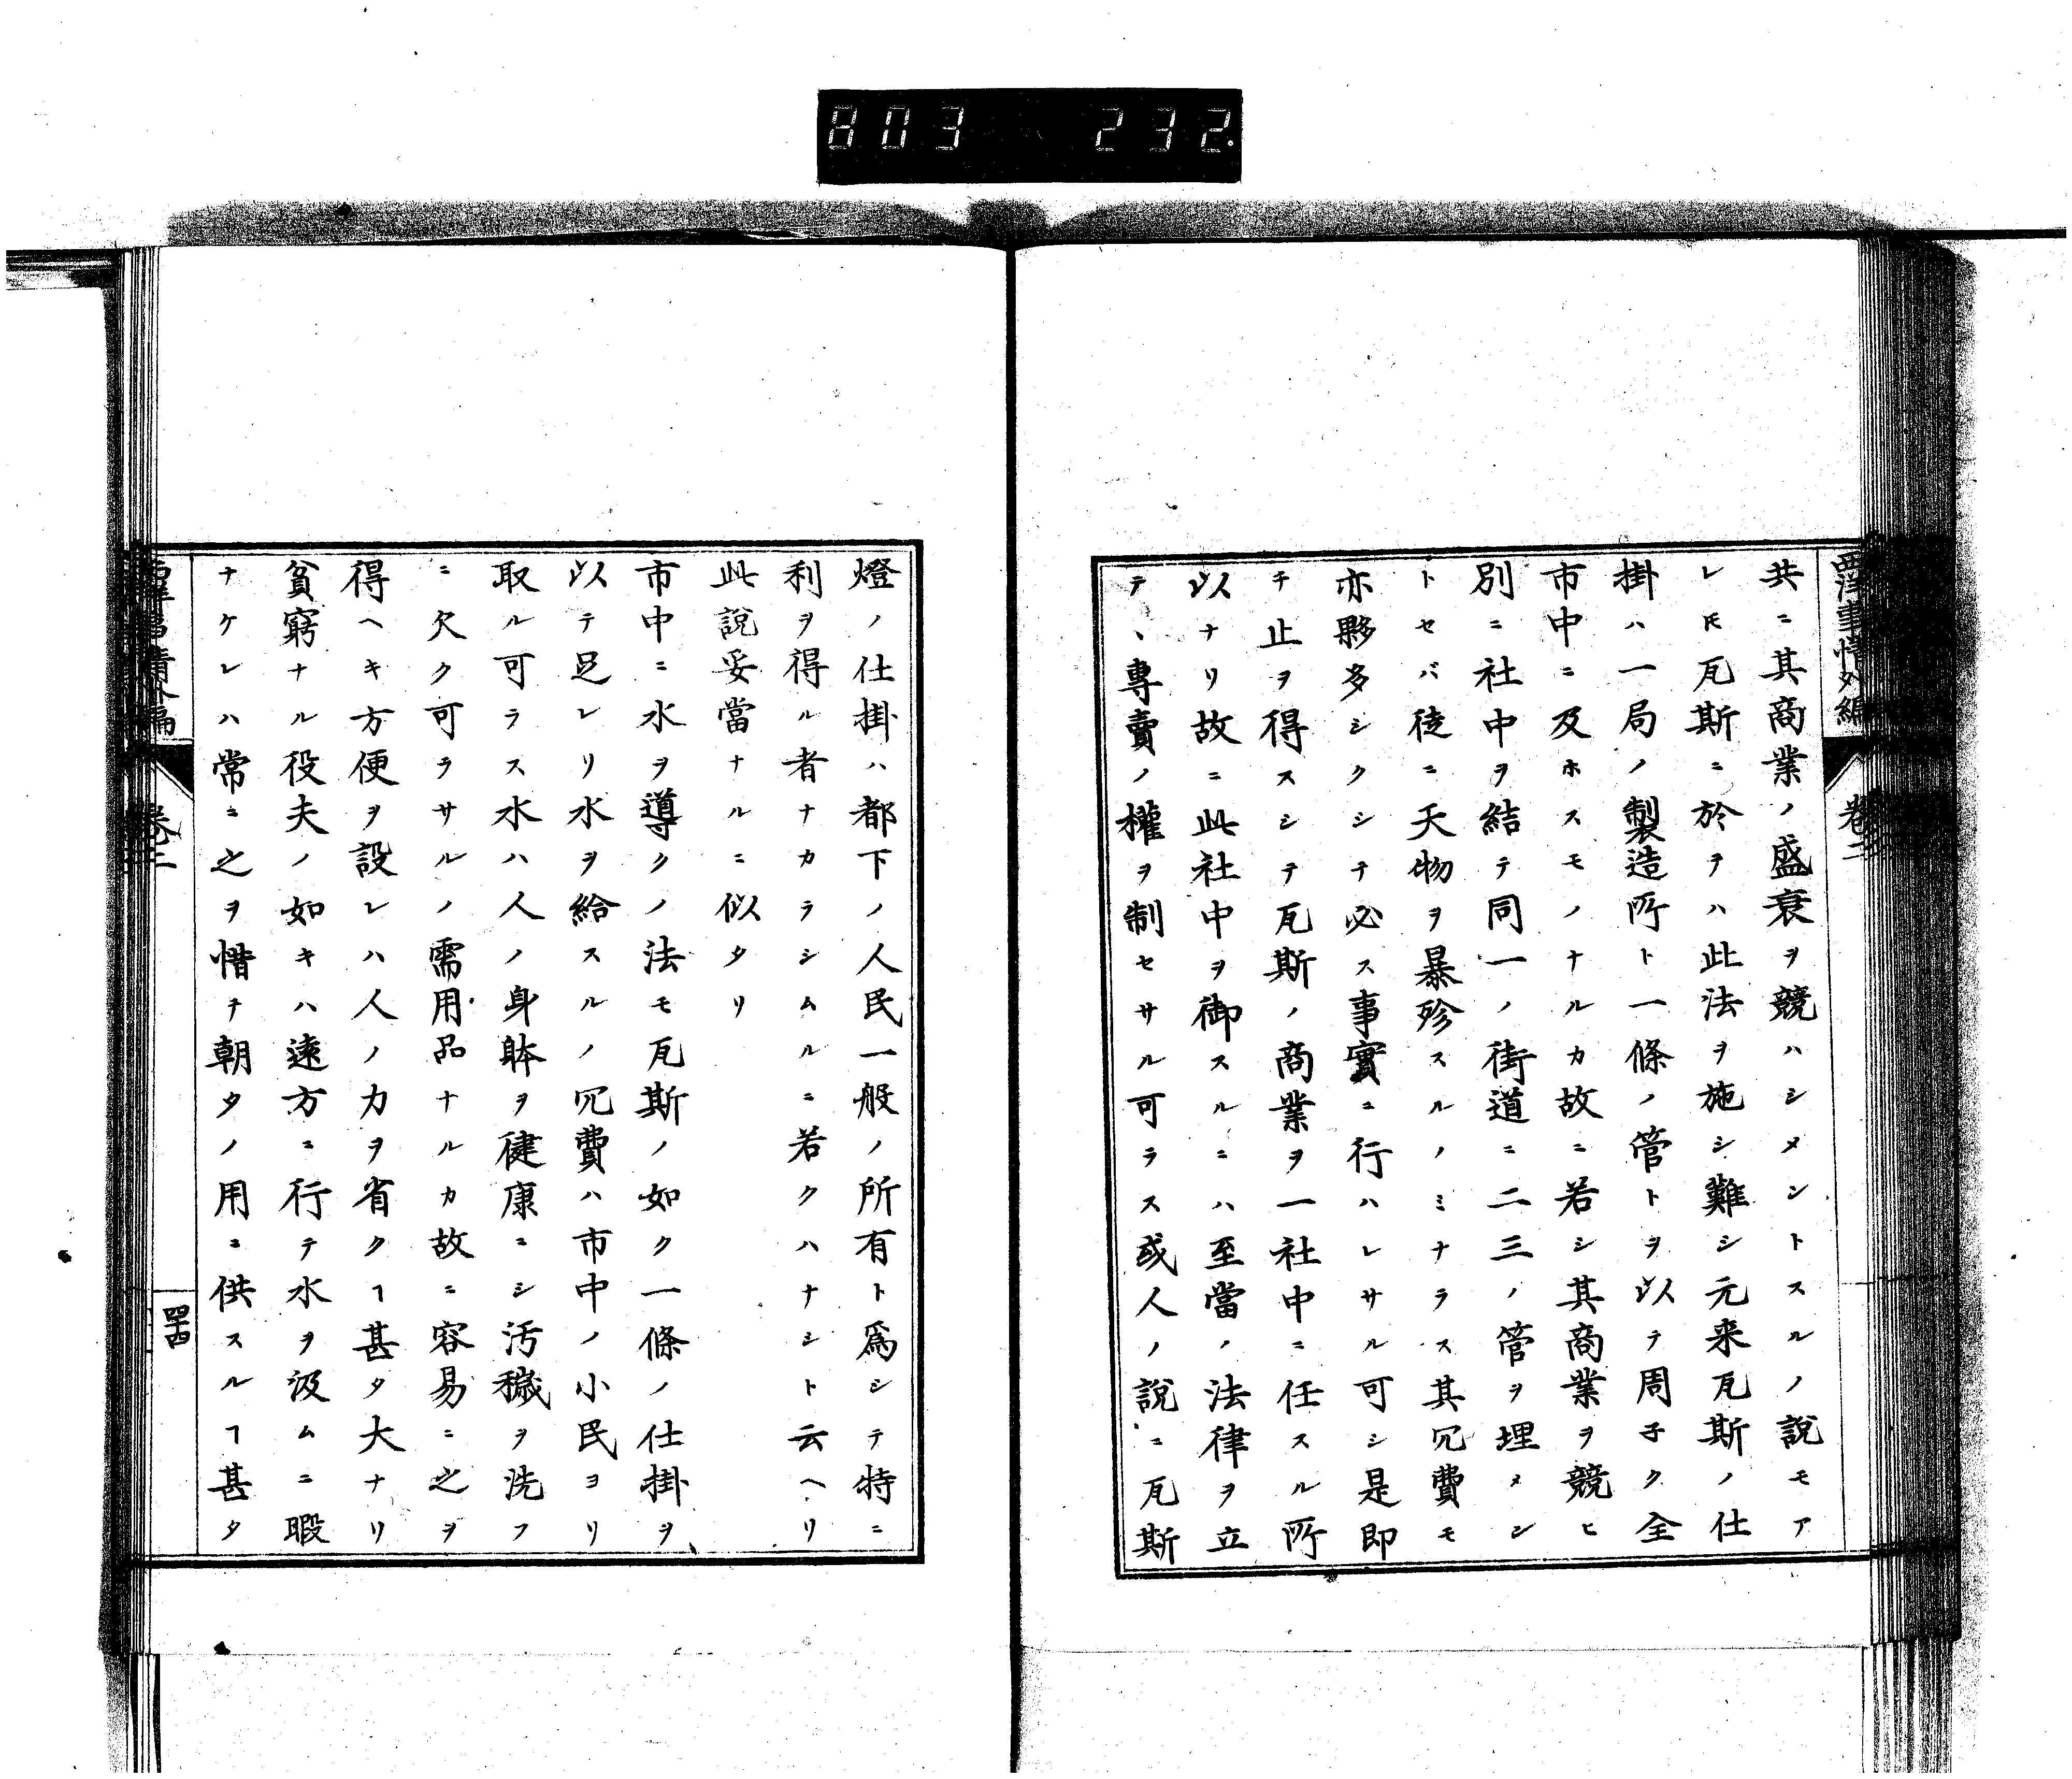 803 232.
西洋事情外編
卷二
共ニ其商業ノ盛衰ヲ競ハシメントスルノ說モア
レ𪜈瓦斯ニ於ヲハ此法ヲ施シ難シ元来瓦斯ノ仕
掛ハ一局ノ製造所ト一條ノ管トヲ以テ周子ク全
市中ニ及ホスモノナルカ故ニ若シ其商業ヲ競ヒ
別ニ社中ヲ結テ同一ノ街道ニ二三ノ管ヲ埋メシ
トセバ徒ニ天物ヲ暴殄スルノミナラス其冗費モ
亦夥多シクシチ必ス事實ニ行ハレサル可シ是即
チ止ヲ得スシテ瓦斯ノ商業ヲ一社中ニ任スル所
以ナリ故ニ此社中ヲ御スルニハ至當ノ法律ヲ立
テ、專賣ノ權ヲ制セサル可ラス或人ノ說ニ瓦斯
燈ノ仕掛ハ都下ノ人民一般ノ所有ト爲シテ特ニ
利ヲ得ル者ナカラシムルニ若クハナシト云ヘリ
此說妥當ナルニ似タリ
市中ニ水ヲ導クノ法モ瓦斯ノ如ク一條ノ仕掛ヲ
以テ足レリ水ヲ給スルノ冗費ハ市中ノ小民ヨリ
取ル可ラス水ハ人ノ身躰ヲ健康ニシ汚穢ヲ洗フ
ニ欠ク可ラサルノ需用品ナルカ故ニ容易ニ之ヲ
得ヘキ方便ヲ設レハ人ノ力ヲ省クヿ甚タ大ナリ
貧窮ナル役夫ノ如キハ遠方ニ行テ水ヲ汲ムニ暇
ナケレハ常ニ之ヲ惜チ朝夕ノ用ニ供スルヿ甚タ
西洋事情外編
卷二
四十四